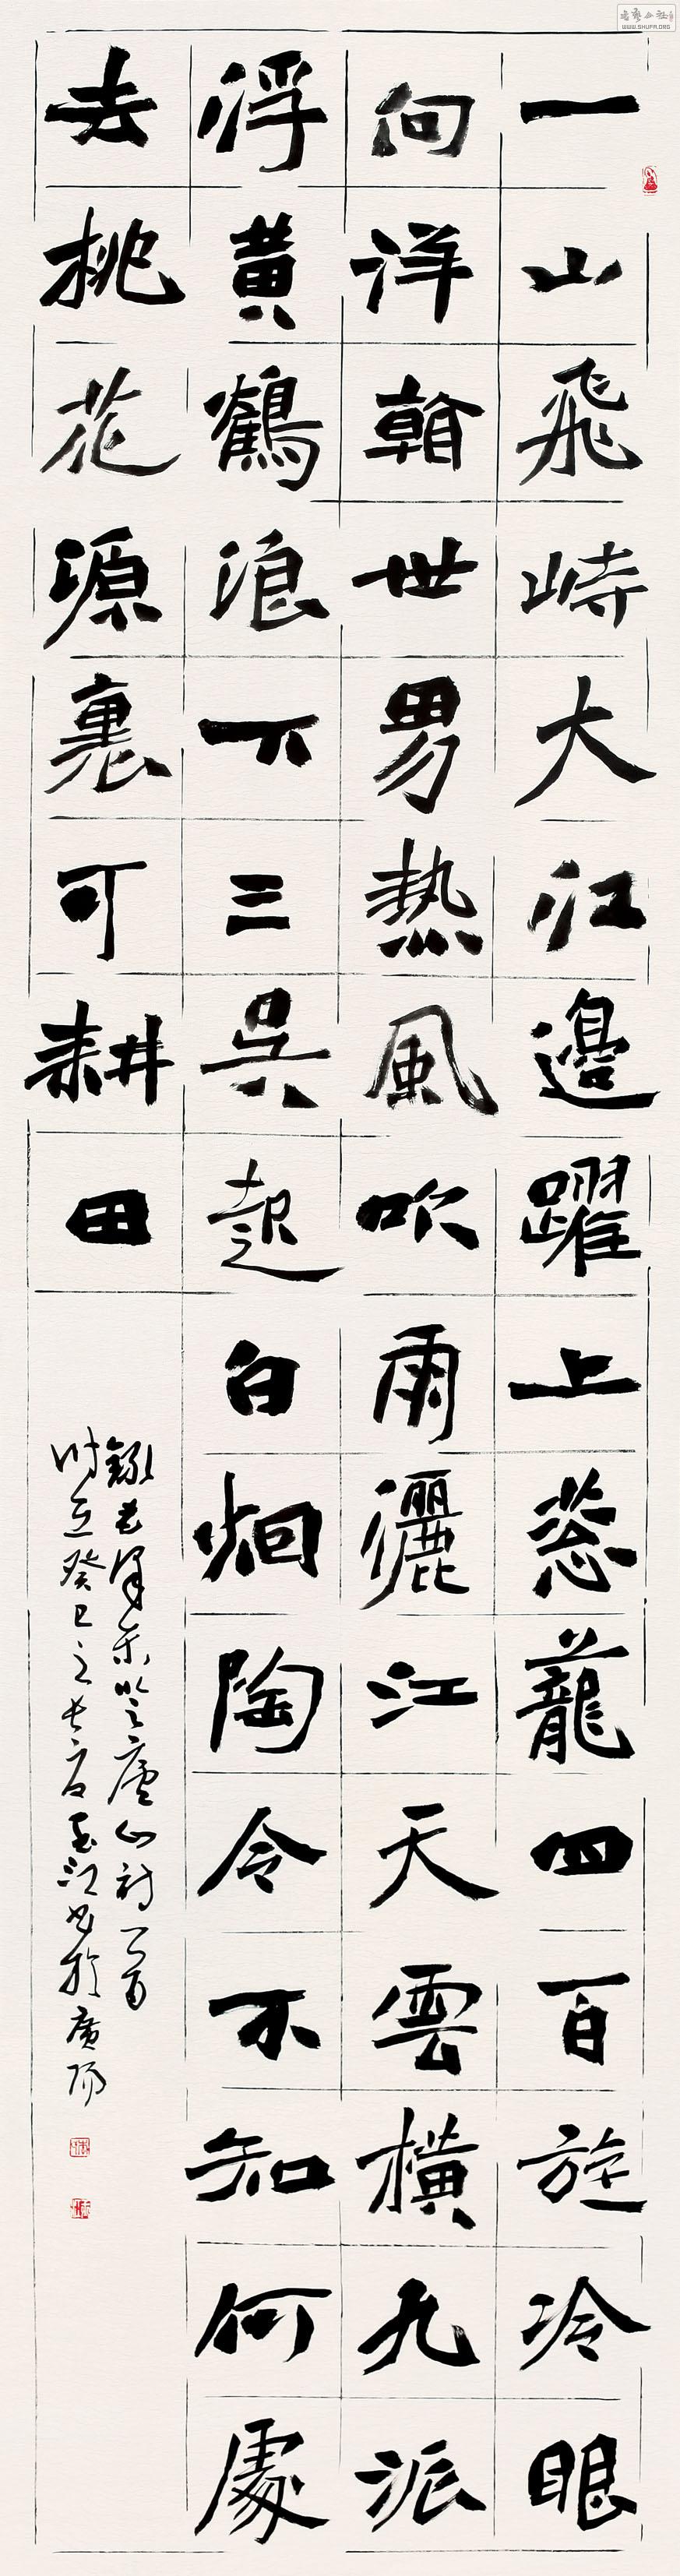 一山飛峙大江邊躍上蔥蘢四百旋冷眼
向洋看世界熱風吹雨灑江天雲橫九派
浮黃鶴浪下三吳起白煙陶令不知何處
去桃花源裏可耕田
錄毛澤東登廬山詩一首
時在癸巳之長夏江書於廣陽
WWW.SHUFA.ORG